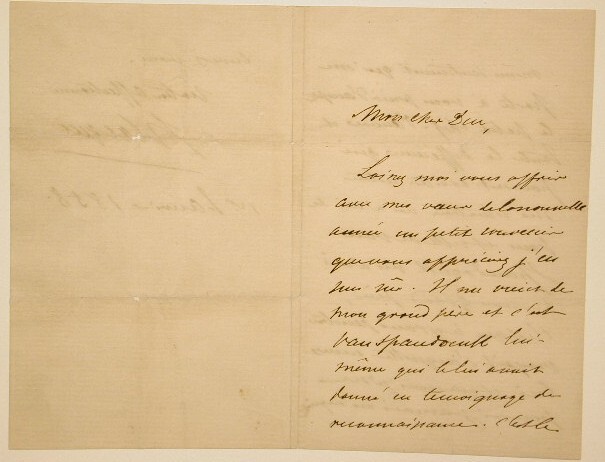 Mon cher Duc,
Laissez moi vous offrir
avec mes vœux de la nouvelle
année un petit souvenir
que vous apprécierez j'en
suis sûr. Il me vient de
mon grand père et c'est
Van Spaendonck lui-
même qui le lui avait
donné en temoignage de
reconnaissance. C'est le